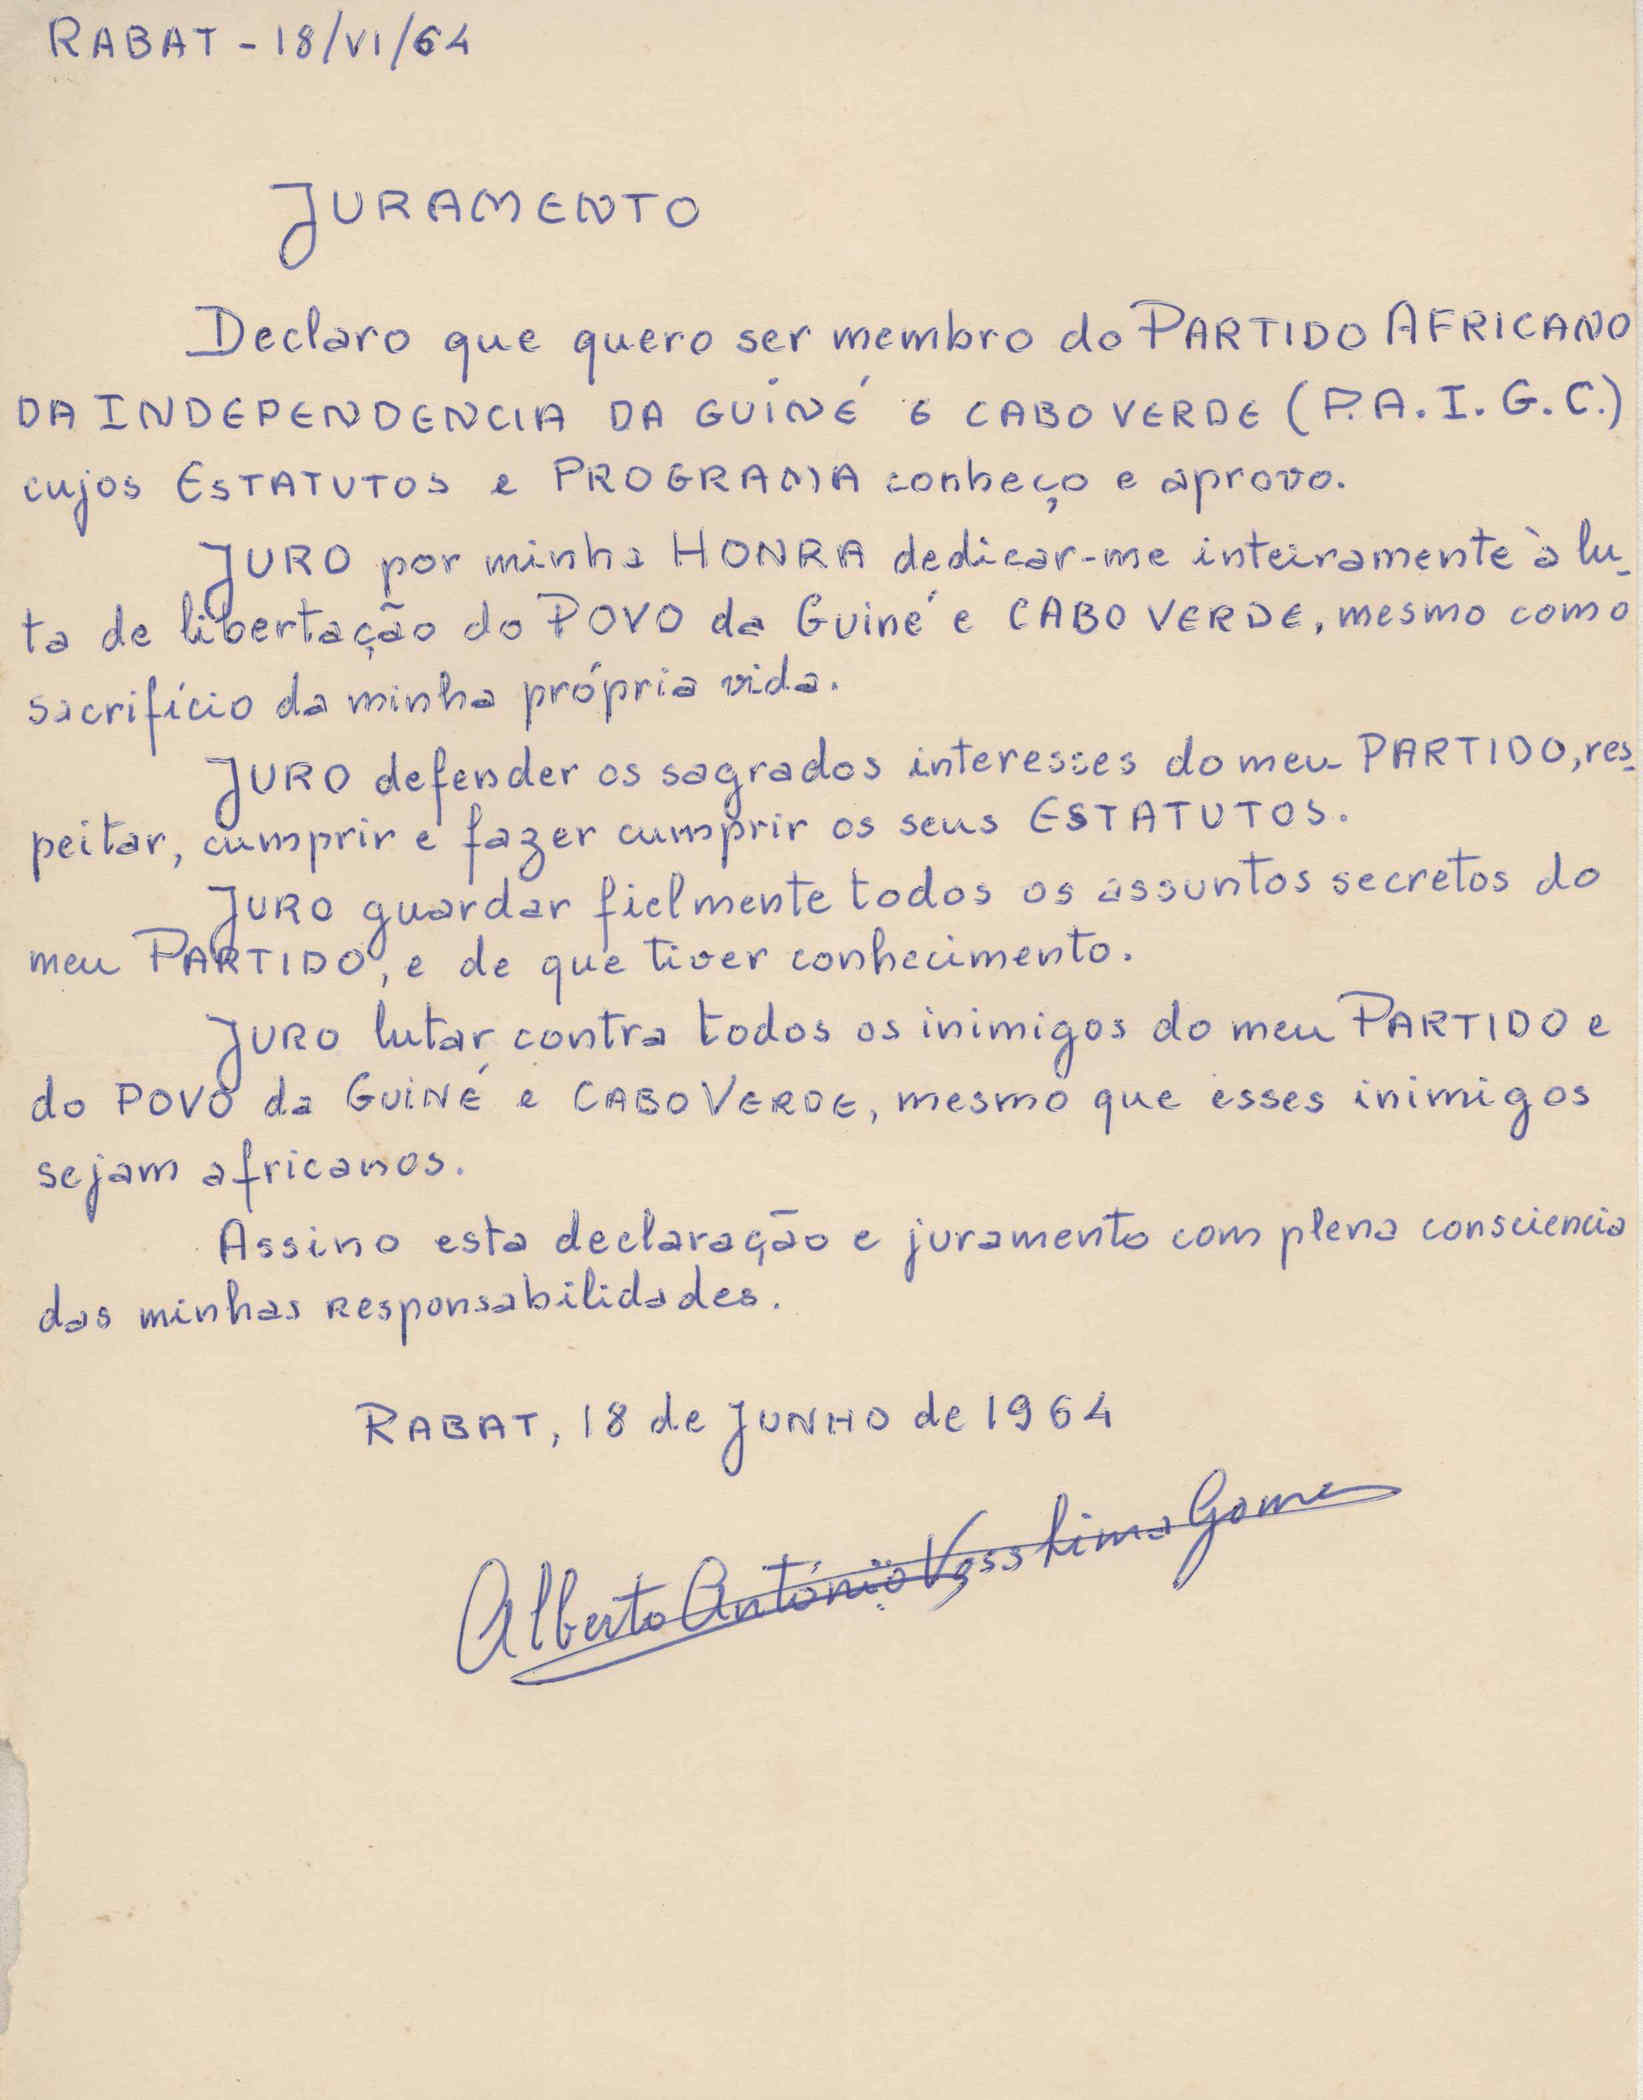 RABAT - 18/VI/64
JURAMENTO
Declaro que quero ser membro do PARTIDO AFRICANO
DA INDEPENDENCIA DA GUINÉ E CABO VERDE (P.A.I.G.C.)
cujos ESTATUTOS e PROGRAMA conheço e aprovo.
JURO por minha HONRA dedicar-me inteiramente à lu-
ta de libertação do POVO da Guiné e CABO VERDE, mesmo como
sacrifício da minha própria vida.
JURO defender os sagrados interesses do meu PARTIDO, res-
peitar, cumprir e fazer cumprir os seus ESTATUTOS.
JURO guardar fielmente todos os assuntos secretos do
meu PARTIDO, e de que tiver conhecimento.
JURO lutar contra todos os inimigos do meu PARTIDO e
do POVO da GUINÉ e CABO VERDE, mesmo que esses inimigos
sejam africanos.
Assino esta declaração e juramento com plena consciencia
das minhas responsabilidades.
RABAT, 18 de JUNHO de 1964
Alberto António Lima Gomes